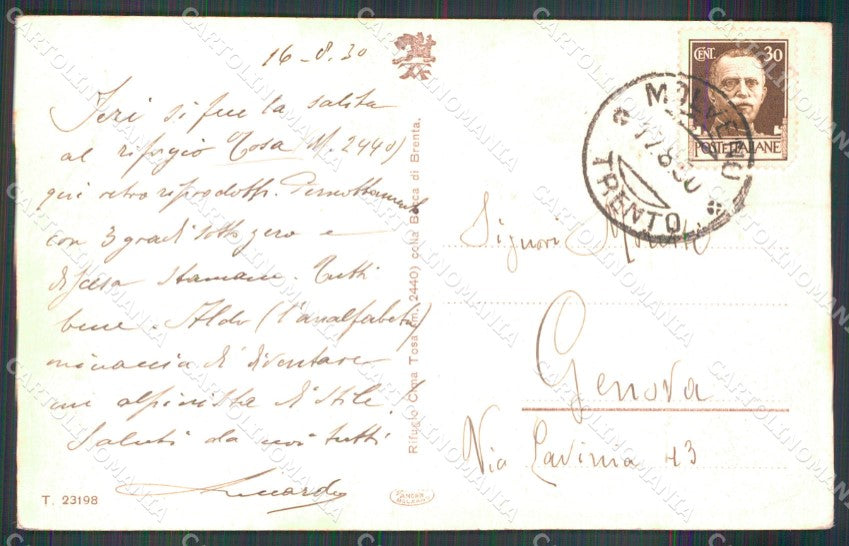 16-8.30
Ieri si fece la salita
al rifugio Tosa M. 2440)
qui retro riprodotto. Pernottamento
con 3 gradi sotto zero e
discesa stamane. Tutti
bene. Aldo (l'analfabeta)
minaccia di diventare
un alpinista di stile!
Saluti da noi tutti
Riccardo
T. 23198
Rifugio Cima Tosa (m. 2440) colla Bocca di Brenta.
CENT. 30
POSTE ITALIANE
MOLVENO
17.8.30
TRENTO
Signori
Genova
Via 43
CARTOLINOMANIA